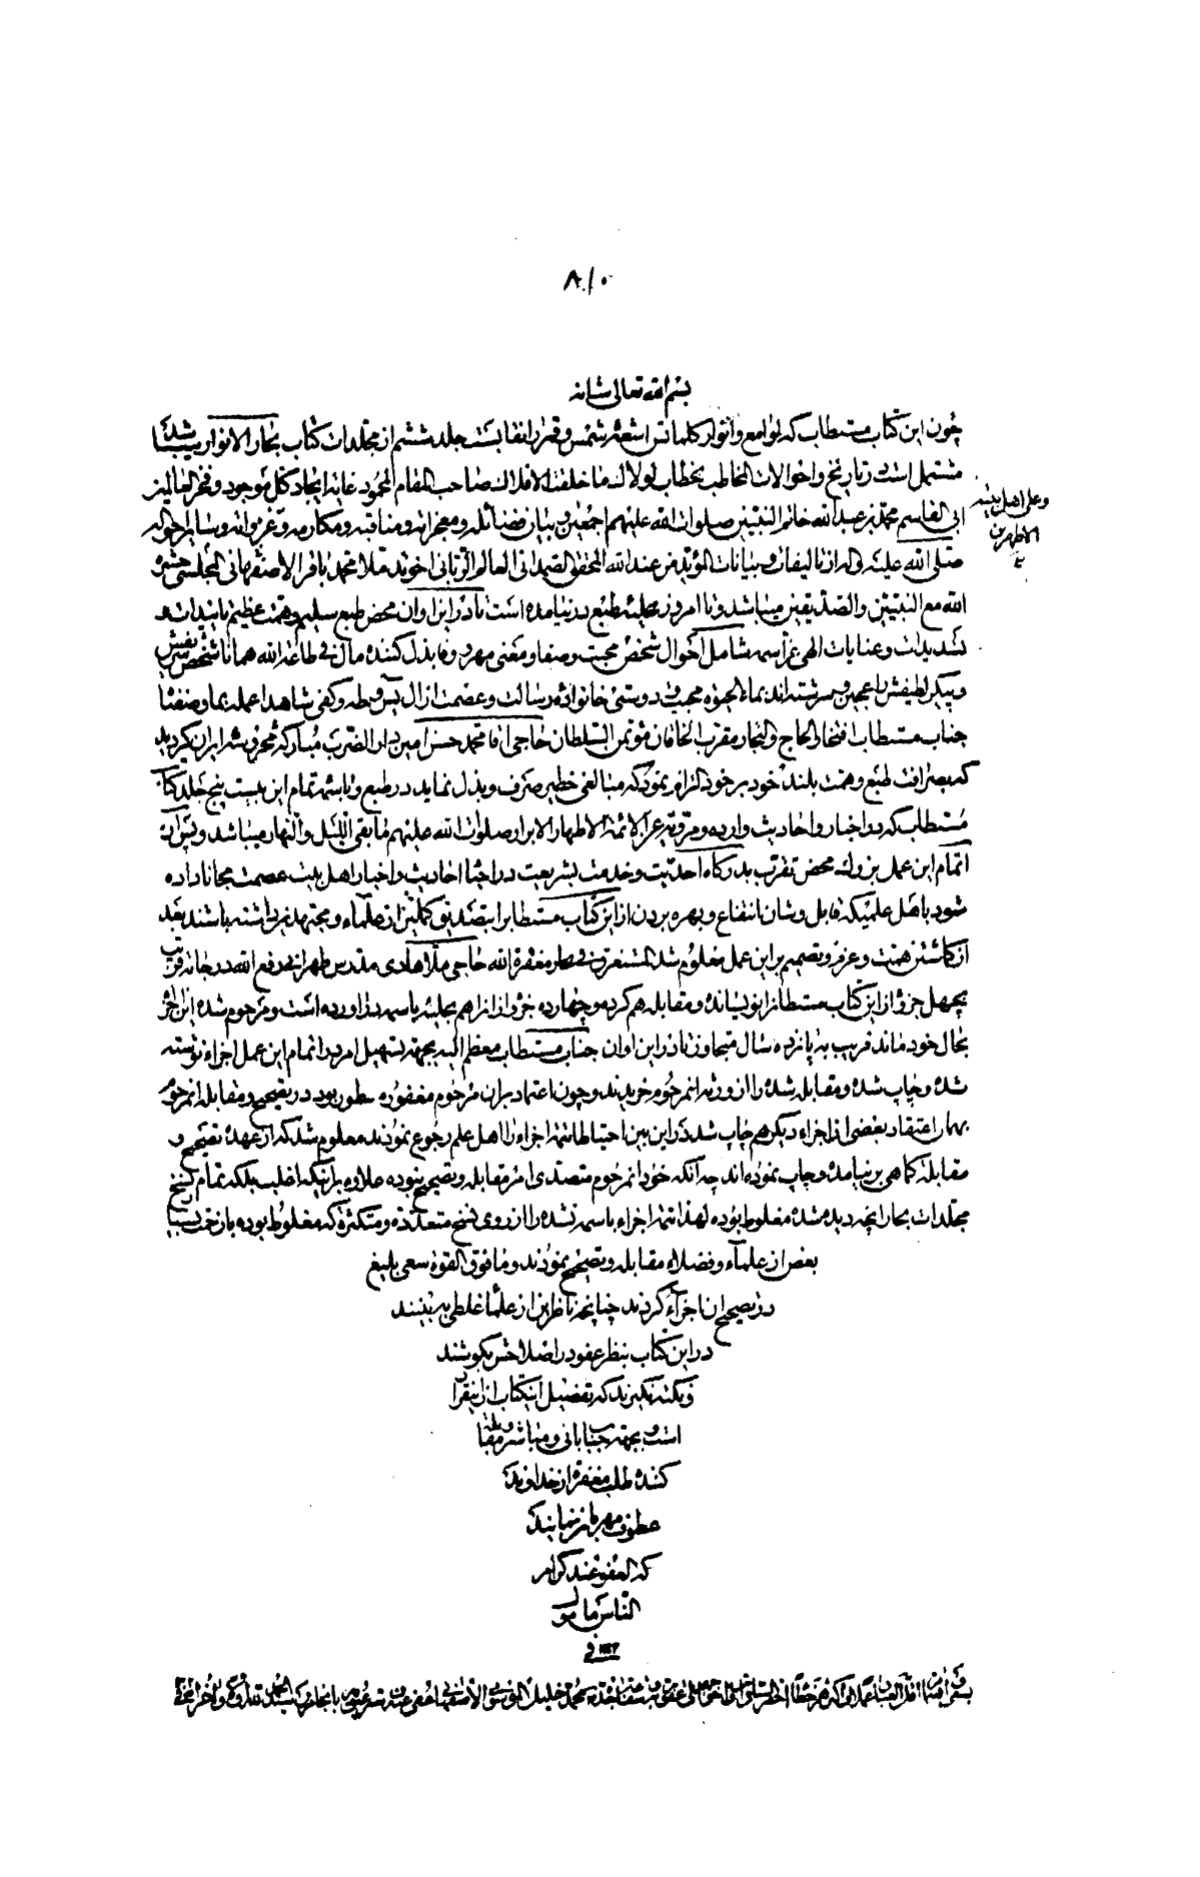 ۸۱۰
بسم الله تعالی شانه
چون این کتاب مستطاب که لوامع و انوار کلماتش اشعهٔ شمس و قمر را نقابست جلد ششم از مجلدات کتاب بحار الانوار میباشد
مشتمل است در تاریخ و احوالات مخاطب بخطاب لولاک لما خلقت الافلاک صاحب المقام المحمود غایة ایجاد کل موجود و فخر العالمین
ابی القاسم محمد بن عبدالله خاتم النبیین صلوات الله علیهم اجمعین و بیان فضائله و معجزاته و مناقبه و مکارمه و غزواته و سایر احواله
وعلی اهل بیته
الاطهرین
صلی الله علیه و اله از تالیفات و بیانات المؤید من عند الله المحقق الصمدانی العالم الربانی اخوند ملا محمد باقر الاصفهانی المجلسی حشره
الله مع النبیین والصدیقین میباشد و تا امروز بحلیهٔ طبع در نیامده است تا در این اوان محض طبع سلیم و همت عظیم تاییدات و
تسدیدات و عنایات الهی عز اسمه شامل احوال شخص محبت و صفا و معنی مهر و وفا بذل کنندهٔ مال فی طاعة الله همانا شخص شریفش
و پیکر لطیفش را عجین و سرشته اند بماء الحیوة محبت و دوستی خانوادهٔ رسالت و عصمت از ال یس و طه و کفی شاهدا عمله بما وصفنا
جناب مستطاب افتخار الحاج والتجار مقرب الخاقان مؤتمن السلطان حاجی اقا محمد حسن امین دار الضرب مبارکه محروسه ایران گردید
که بصرافت طبع و همت بلند خود بر خود الزام نمود که مبالغی خطیر صرف و بذل نماید در طبع و باسمه تمام این بیست پنج جلد کتاب
مستطاب که در اخبار و احادیث وارده و مرویه عن الائمة الاطهار الابرار صلوات الله علیهم مابقی اللیل والنهار میباشد و پس از
اتمام این عمل بزرگ محض تقرب بدرگاه احدیت و خدمت بشریعت در احیا احادیث و اخبار اهل بیت عصمت مجانا داده
شود باهل علمیکه قابل و شان انتفاع و بهره بردن از این کتاب مستطاب را بتصدیق کملین از علماء و مجتهدین داشته باشند بعد
از گماشتن همت و عزم و تصمیم بر این عمل معلوم شد المستغرق فی بحار مغفرة الله حاجی ملا هادی مقدس طهرانی رفع الله درجاته قریب
بچهل جزو از این کتاب مستطاب را نویسانده و مقابله هم کرده و چهارده جزو از انرا هم بحلیهٔ باسمه در اورده است و مرحوم شده این جزو
بحال خود ماند قریب به پانزده سال متجاوز تا در این اوان جناب مستطاب معظم الیه بجهة تسهیل امر در اتمام این عمل اجزاء نوشته
شده و چاپ شده و مقابله شده را از ورثه انمرحوم خریدند و چون اعتماد بران مرحوم مغفور مسطور بود در تصحیح و مقابله انمرحوم
بهمان اعتقاد بعضی از اجزاء دیگر هم چاپ شد در این بین احتیاطا تتمه اجزاء را اهل علم رجوع نمودند معلوم شد که از عهدهٔ تصحیح و
مقابله کما هی بر نیامده و چاپ نموده اند چه آنکه خود انمرحوم متصدی امر مقابله و تصحیح نبوده علاوه بر اینکه اغلب بلکه تمام نسخ
مجلدات بحار انچه دیده شده مغلوط بوده لهذا تتمه اجزاء باسمه نشده را از روی نسخ متعدده و متکثره که مغلوط بوده باز زحمت بسیار
بعض از علماء و فضلاء مقابله و تصحیح نمودند و مافوق القوه سعی بلیغ
در تصحیح ان اجزاء کردند چنانچه ناظرین از علما غلطی به بینند
در این کتاب بنظر عفو در اصلاحش بکوشند
و نکته نگیرند که تفضیل اینکتاب از اینقرار
است و بجهة جناب بانی و مباشر و مقابله
کننده طلب مغفرة از خداوند
عطوف مهربان نمایند
که العفو عند کرام
الناس مامول
فی